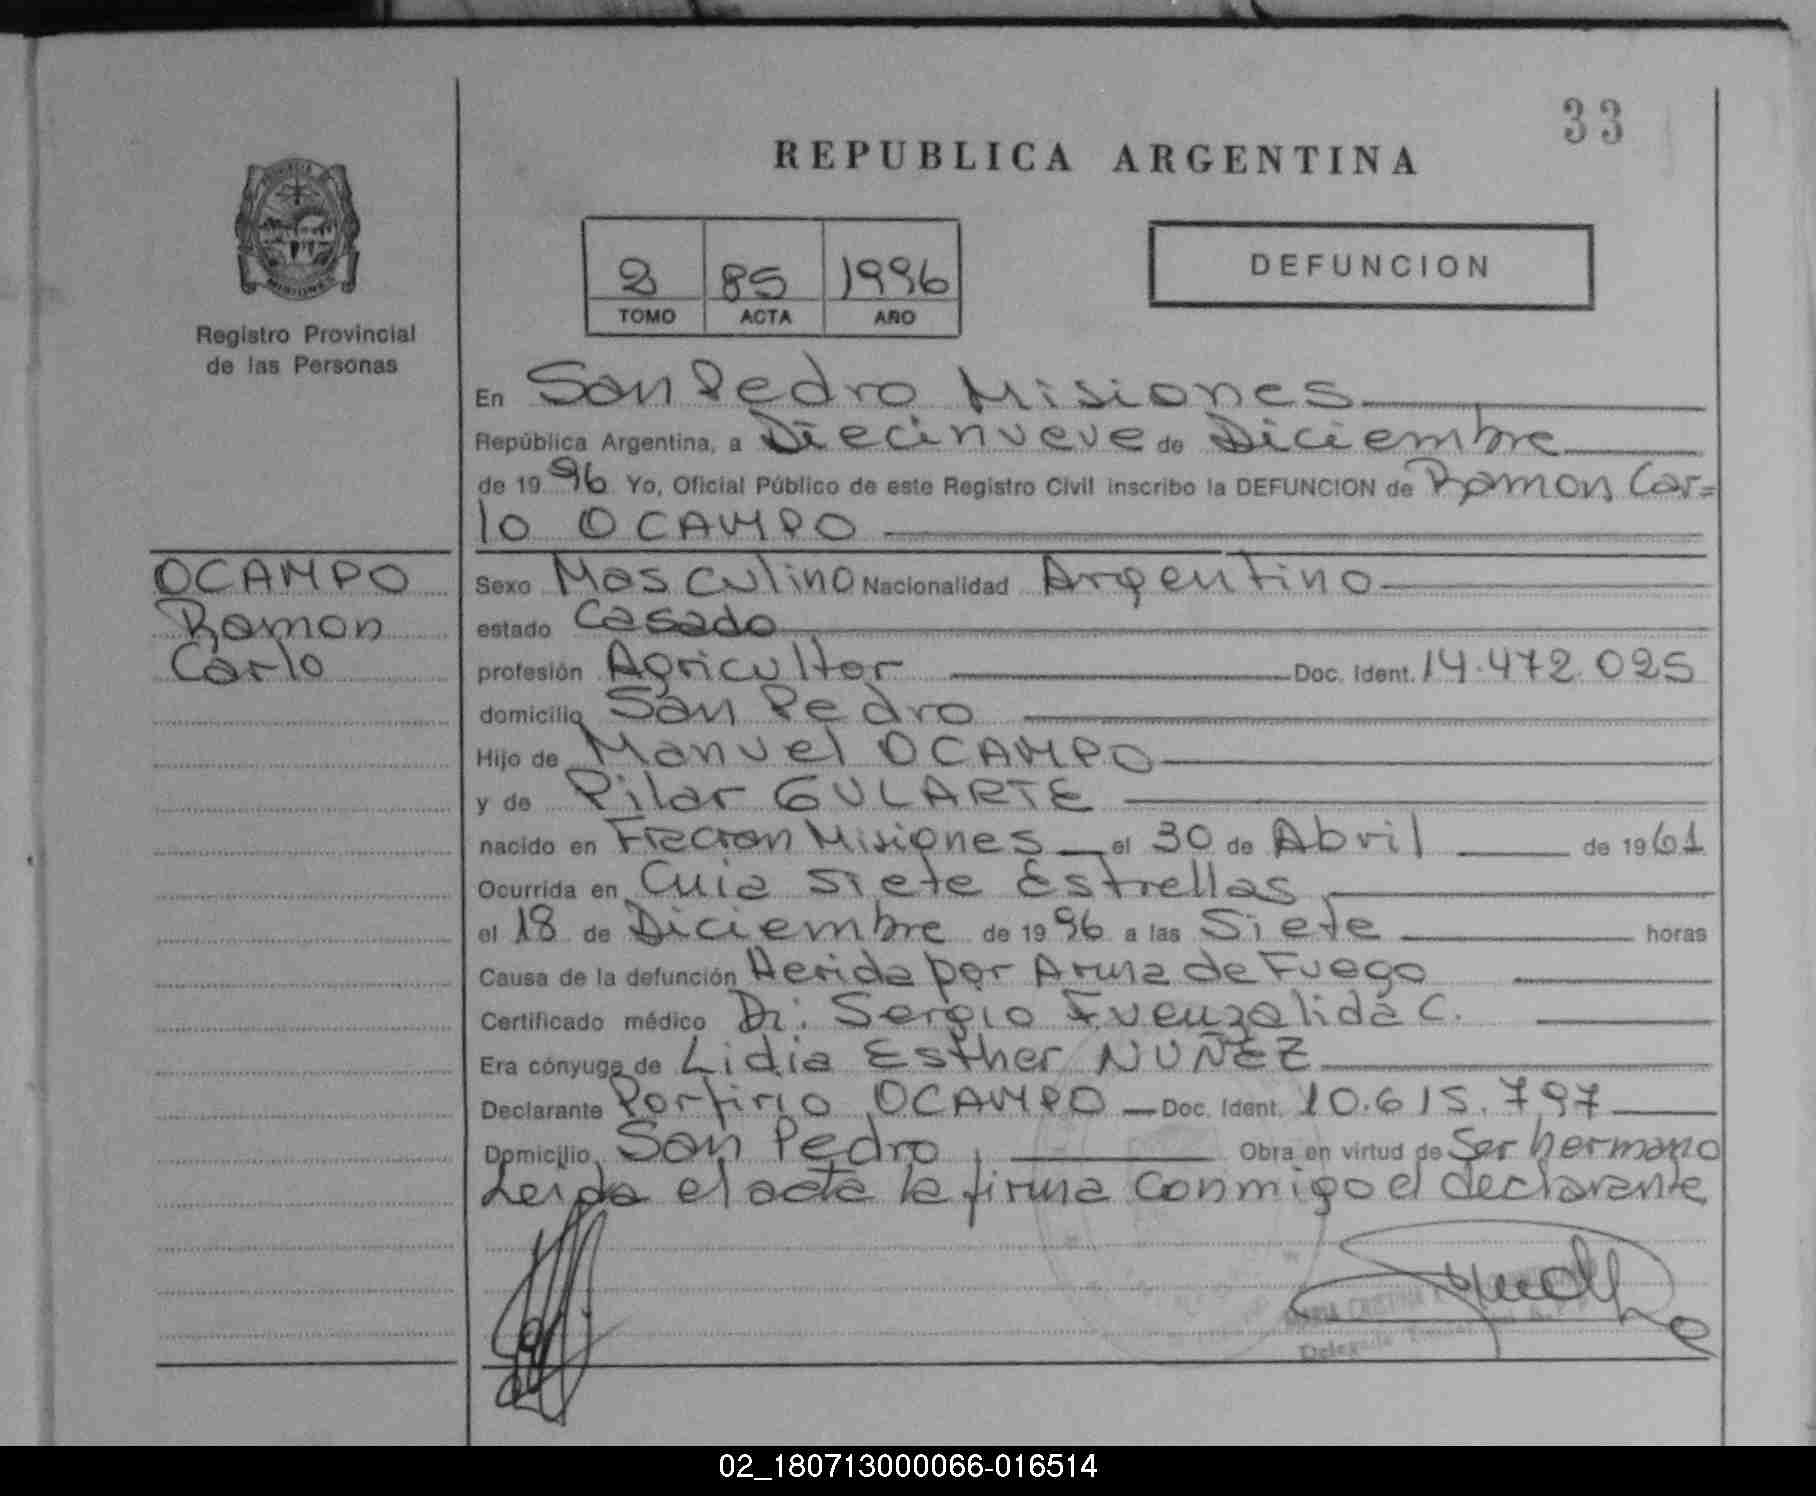 33
REPUBLICA ARGENTINA
MISIONES
Registro Provincial
de las Personas
2 85 1996
TOMO ACTA AÑO
DEFUNCION
En San Pedro Misiones
República Argentina, a Diecinueve de Diciembre
de 1996 Yo, Oficial Público de este Registro Civil inscribo la DEFUNCION de Ramon Car=
lo OCAMPO
OCAMPO
Ramon
Carlo
Sexo Masculino Nacionalidad Argentino
estado Casado
profesión Agricultor Doc. Ident. 14.472.025
domicilio San Pedro
Hijo de Manuel OCAMPO
y de Pilar GULARTE
nacido en Fracran Misiones el 30 de Abril de 1961
Ocurrida en Cuia Siete Estrellas
el 18 de Diciembre de 1996 a las Siete horas
Causa de la defunción Herida por Arma de Fuego
Certificado médico Dr: Sergio Fuenzalida C.
Era cónyuge de Lidia Esther NUÑEZ
Declarante Porfirio OCAMPO Doc. Ident. 10.615.797
Domicilio San Pedro Obra en virtud de Ser hermano
Leida el acta la firma conmigo el declarante
MARIA CRISTINA
Delegada
02_180713000066-016514